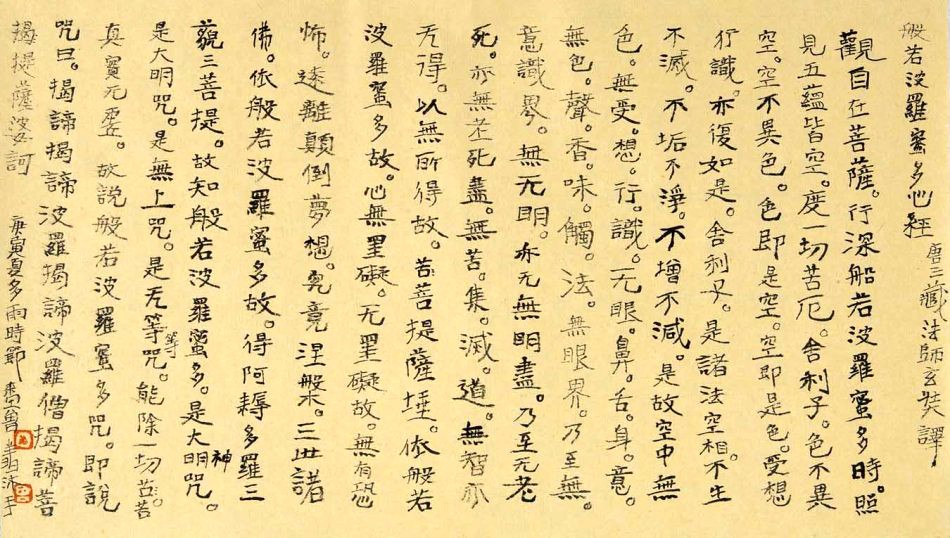 般若波羅蜜多心经 唐三藏法師玄奘譯
觀自在菩薩。行深船若波羅蜜多時。照
見五蘊皆空。度一切苦厄。舍利子。色不異
空。空不異色。色即是空。空即是色。受想
行識。亦復如是。舍利子。是諸法空相。不生
不滅。不垢不淨。不增不減。是故空中無
色。無受。想。行。識。无眼。鼻。舌。身。意。
無色。聲。香。味。觸。法。無眼界。乃至無。
意識界。無无明。亦无無明盡。乃至无老
死。亦無老死盡。無苦。集。滅。道。無智亦
无得。以無所得故。菩提薩埵。依般若
波羅蜜多故。心無罣礙。无罣礙故。無有恐
怖。遠離顛倒夢想。究竟涅槃。三世諸
佛。依般若波羅蜜多故。得阿耨多羅三
藐三菩提。故知般若波羅蜜多。是大神明咒。
是大明咒。是無上咒。是无等等咒。能除一切苦。
真實无虛。故説般若波羅蜜多咒。即說
咒曰。揭諦揭諦波羅揭諦波羅僧揭諦菩
揭提薩婆訶 庚寅夏多雨時節